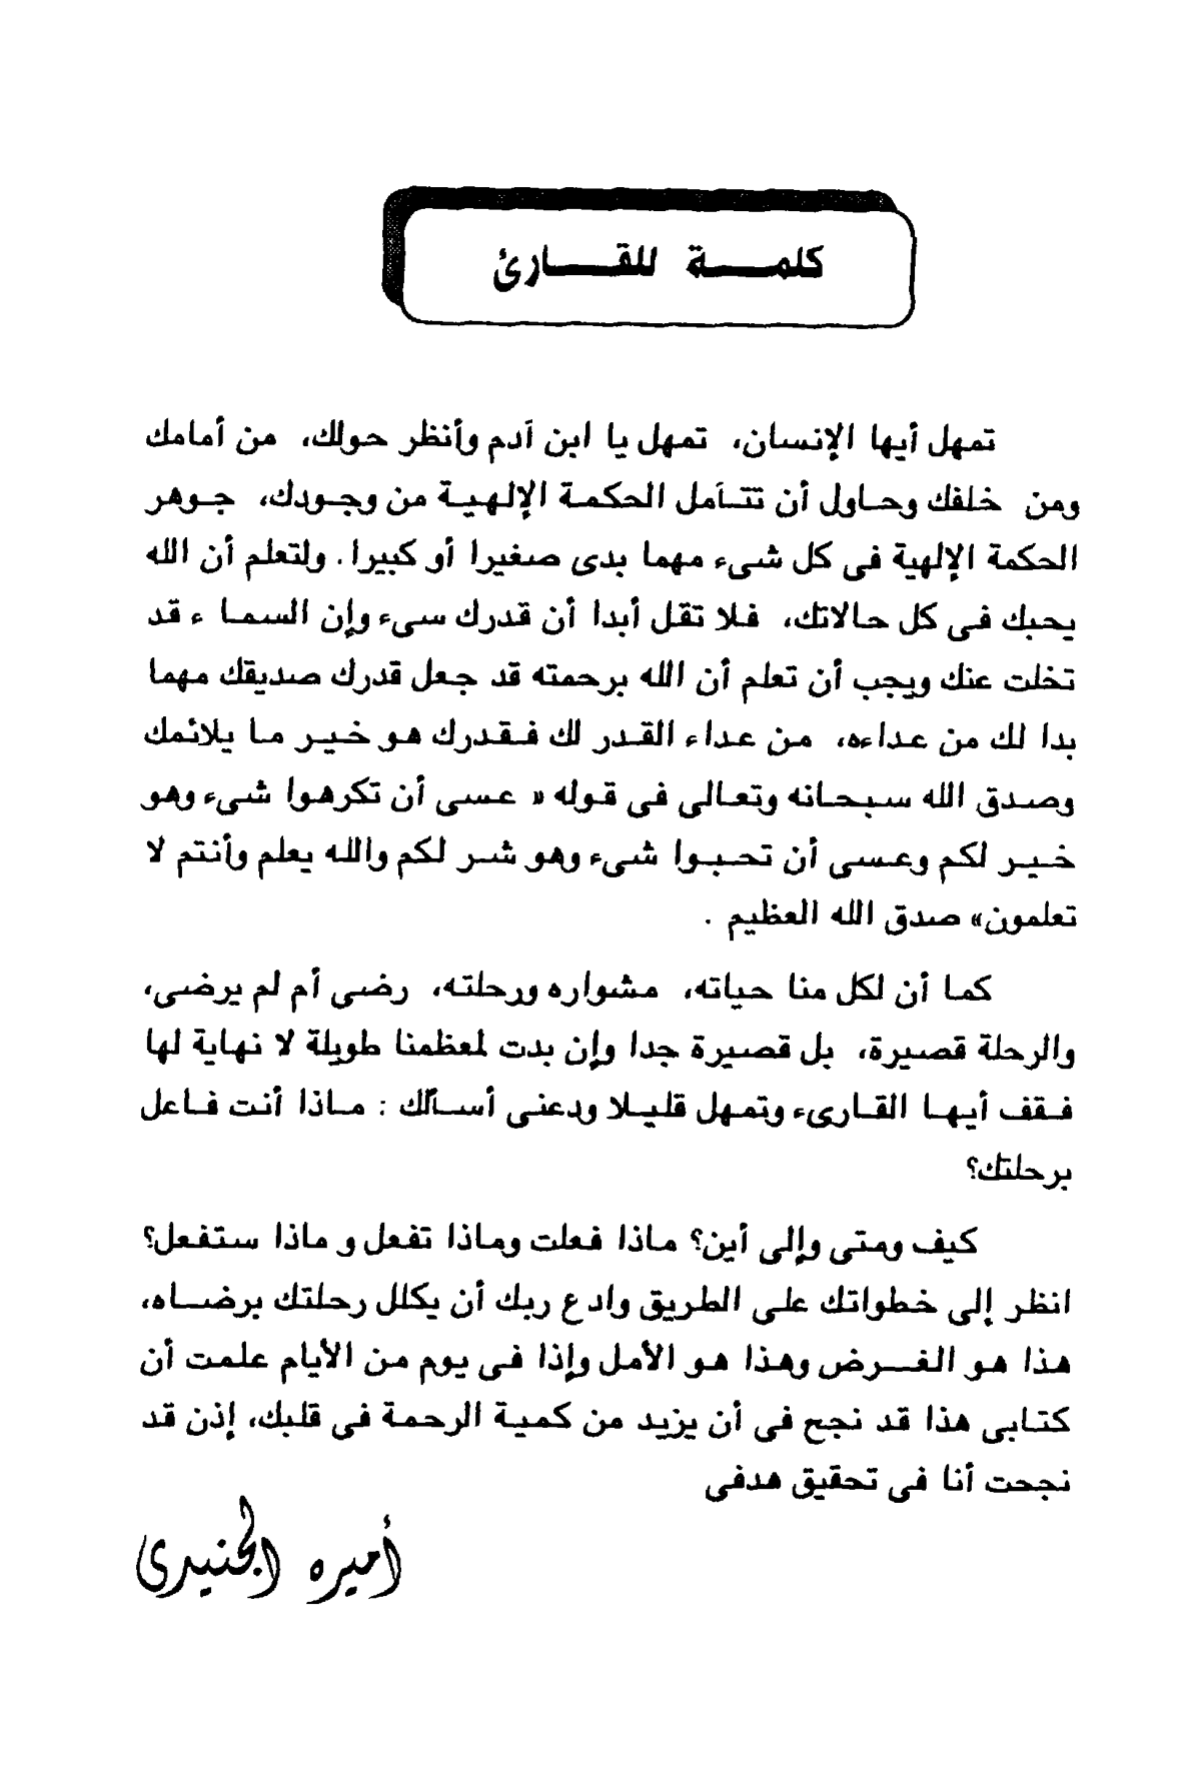 كلمة للقارئ
تمهل أيها الإنسان، تمهل يا ابن آدم وأنظر حولك، من أمامك
ومن خلفك وحاول أن تتأمل الحكمة الإلهية من وجودك، جوهر
الحكمة الإلهية فى كل شىء مهما بدى صغيرا أو كبيرا. ولتعلم أن الله
يحبك فى كل حالاتك، فلا تقل أبدا أن قدرك سىء وإن السما ء قد
تخلت عنك ويجب أن تعلم أن الله برحمته قد جعل قدرك صديقك مهما
بدا لك من عداءه، من عداء القدر لك فقدرك هو خير ما يلائمك
وصدق الله سبحانه وتعالى فى قوله « عسى أن تكرهوا شىء وهو
خير لكم وعسى أن تحبوا شىء وهو شر لكم والله يعلم وأنتم لا
تعلمون» صدق الله العظيم .
كما أن لكل منا حياته، مشواره ورحلته، رضى أم لم يرضى،
والرحلة قصيرة، بل قصيرة جدا وإن بدت لمعظمنا طويلة لا نهاية لها
فقف أيها القارىء وتمهل قليلا ودعنى أسألك : ماذا أنت فاعل
برحلتك؟
كيف ومتى وإلى أين؟ ماذا فعلت وماذا تفعل و ماذا ستفعل؟
انظر إلى خطواتك على الطريق وادع ربك أن يكلل رحلتك برضاه،
هذا هو الغرض وهذا هو الأمل وإذا فى يوم من الأيام علمت أن
كتابى هذا قد نجح فى أن يزيد من كمية الرحمة فى قلبك، إذن قد
نجحت أنا فى تحقيق هدفى
أميره الجنيدى